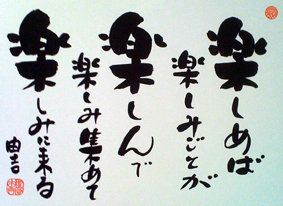 楽しめば
楽しみごとが
楽しんで
楽しみ集めて
楽しみに来る
由吉